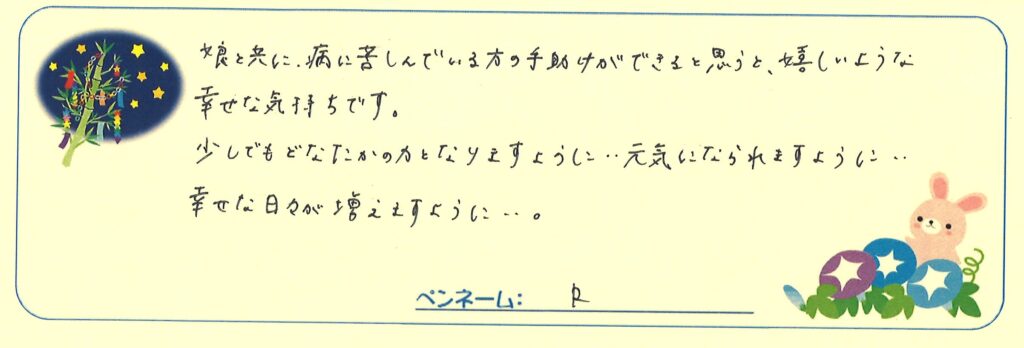 娘と共に、病に苦しんでいる方の手助けができると思うと、嬉しいような
幸せな気持ちです。
少しでもどなたかの力となりますように‥元気になられますように‥
幸せな日々が増えますように‥。
ペンネーム: R